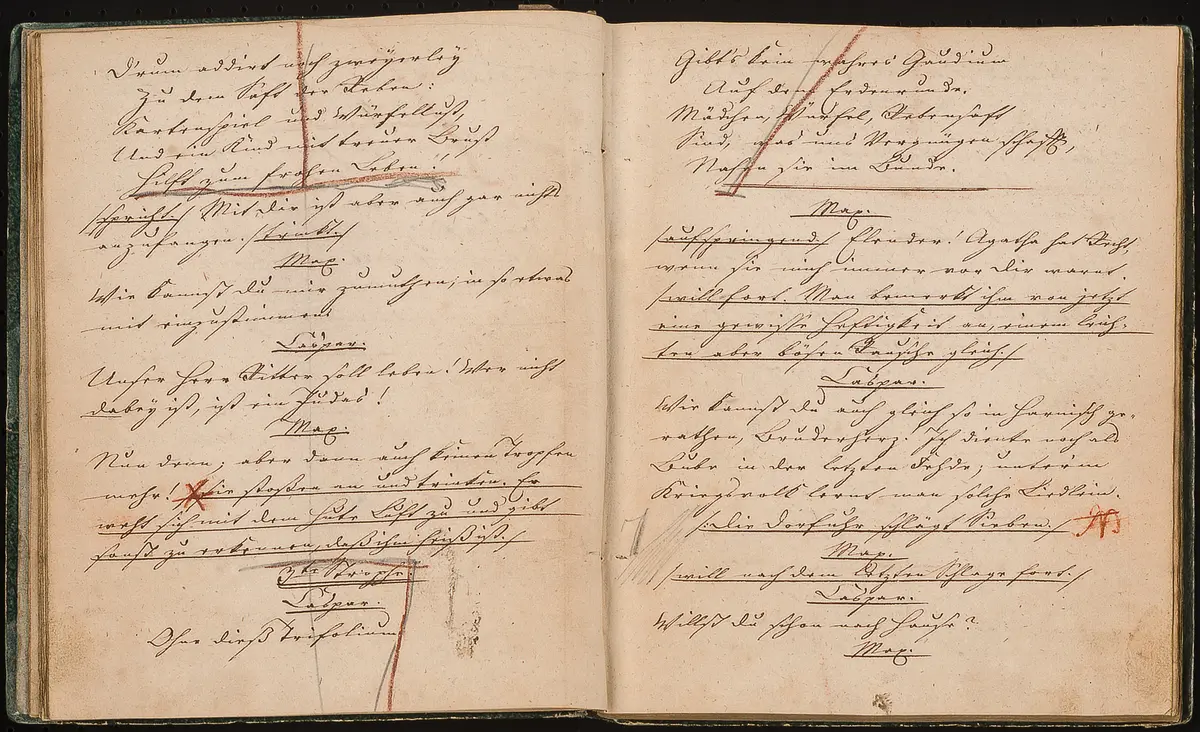 D'rum addirt noch zweyerley
Zu dem Saft der Reben:
Kartenspiel und Würfellust,
Und ein Kind mit treuer Brust
Hilft zum frohen Leben!
/:spricht:/ Mit Dir ist aber auch gar nichts
anzufangen. /:trinkt:/
Max.
Wie kannst du mir zumuthen, in so etwas
mit einzustimmen!
Caspar.
Unser Herr Ritter soll leben! Wer nicht
dabey ist, ist ein Judas!
Max.
Nun denn; aber dann auch keinen Tropfen
mehr! /:Sie stoßen an und trinken. Er
weht sich mit dem Hute Luft zu und gibt
sonst zu erkennen, daß ihm heiß ist.:/
Strophe
Caspar.
Ohne dieß Trifolium
Gibt's kein wahres Gaudium
Auf dem Erdenrunde.
Mädchen, Würfel, Rebensaft
Sind, was uns Vergnügen schafft,
sie im Bunde.
Max.
/:aufspringend:/ Elender! Agatha hat Recht,
wenn sie mich immer vor Dir warnt.
/:will fort. Man bemerkt ihm von jetzt
eine gewisse Heftigkeit an, einem leich-
ten aber bösen Rausche gleich.:/
Caspar.
Wie kannst du auch gleich so in Harnisch ge-
rathen, Bruderherz! Ich diente noch als
Bube in der letzten Fehde; unterm
Kriegsvolk lernt man solche Liedlein.
/:Die Dorfuhr schlägt Sieben.:/
Max.
/:will nach dem letzten Schlage fort.:/
Caspar.
Willst du schon nach Hause?
Max.